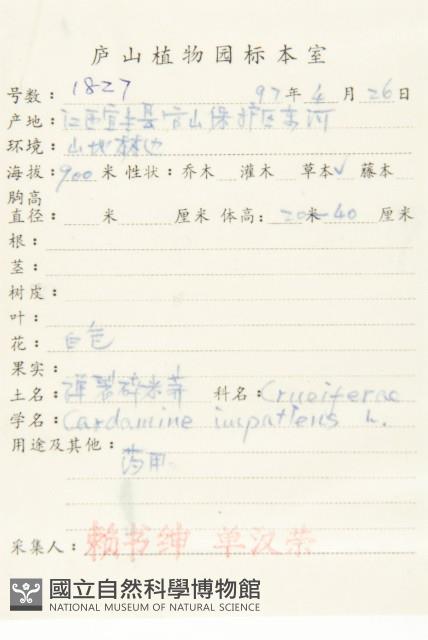 庐山植物园标本室
号数：1827 97年4月26日
产地：江西宜丰县官山保护区东河
环境：山地林边
海拔：900米 性状：乔木 灌木 草本√ 藤本
胸高
直径： 米 厘米 体高：20米-40 厘米
根：
茎：
树皮：
叶：
花：白色
果实：
土名：弹裂碎米荠 科名：Cruciferae
学名：Cardamine impatiens L.
用途及其他：
药用。
采集人：赖书绅 单汉荣
國立自然科學博物館
NATIONAL MUSEUM OF NATURAL SCIENCE